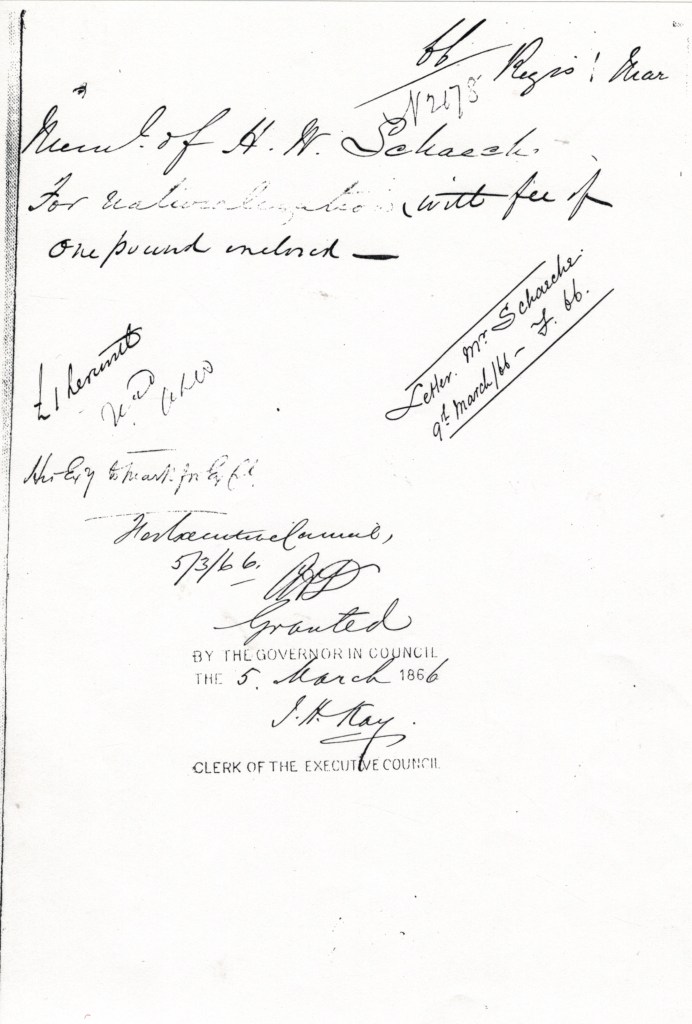 66 Regis: Mar
N2178
Meml. of H. W. Schaech
For naturalization, with fee of
one pound enclosed —
Letter. Mr. Schaeche.
9th March/66 — F. 66.
£1 herewith
His Exy to mark for Ex Cl.
For Executive Council,
5/3/66.
Granted
BY THE GOVERNOR IN COUNCIL
THE 5. March 1866
J. H. Kay.
CLERK OF THE EXECUTIVE COUNCIL